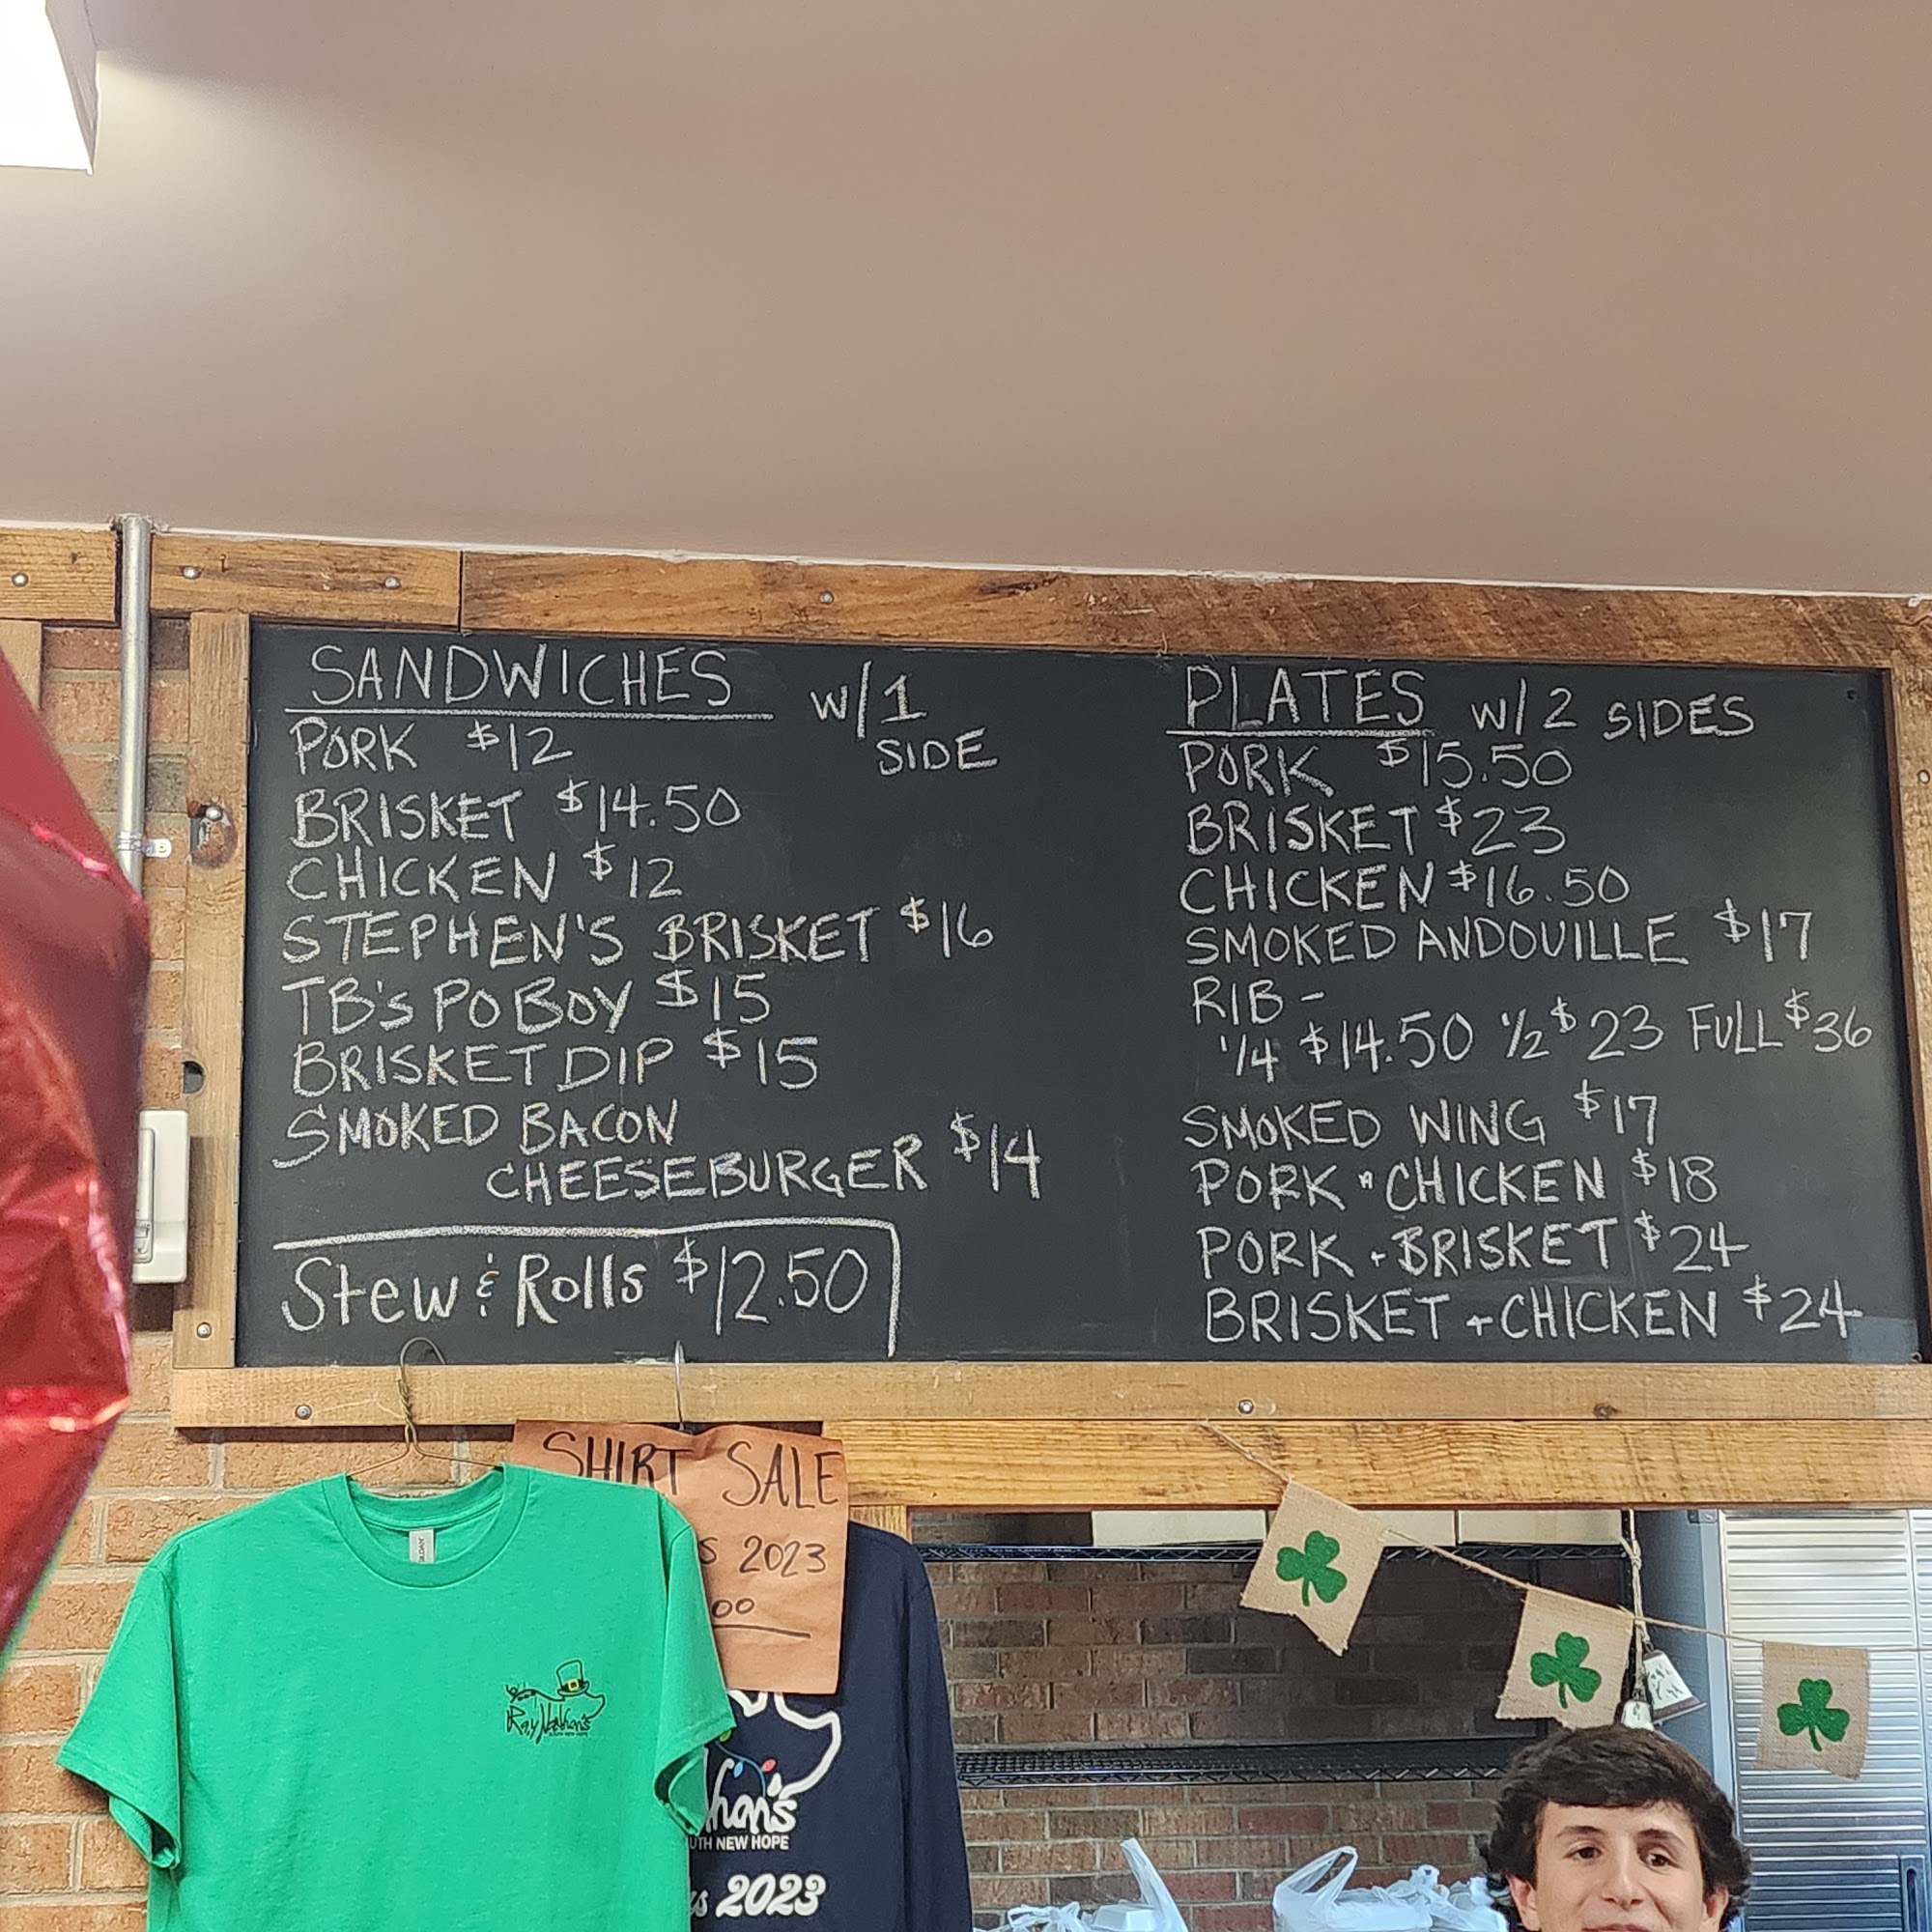 SANDWICHES w/1
SIDE
PORK $12
BRISKET $14.50
CHICKEN $12
STEPHEN'S BRISKET $16
TB's PO BOY $15
BRISKET DIP $15
SMOKED BACON
CHEESEBURGER $14
Stew & Rolls $12.50
PLATES w/2 SIDES
PORK $15.50
BRISKET $23
CHICKEN $16.50
SMOKED ANDOUILLE $17
RIB -
1/4 $14.50 1/2 $23 FULL $36
SMOKED WING $17
PORK + CHICKEN $18
PORK + BRISKET $24
BRISKET + CHICKEN $24
SHIRT SALE
2023
00
Ray Nathan's
SOUTH NEW HOPE
NEW HOPE
2023